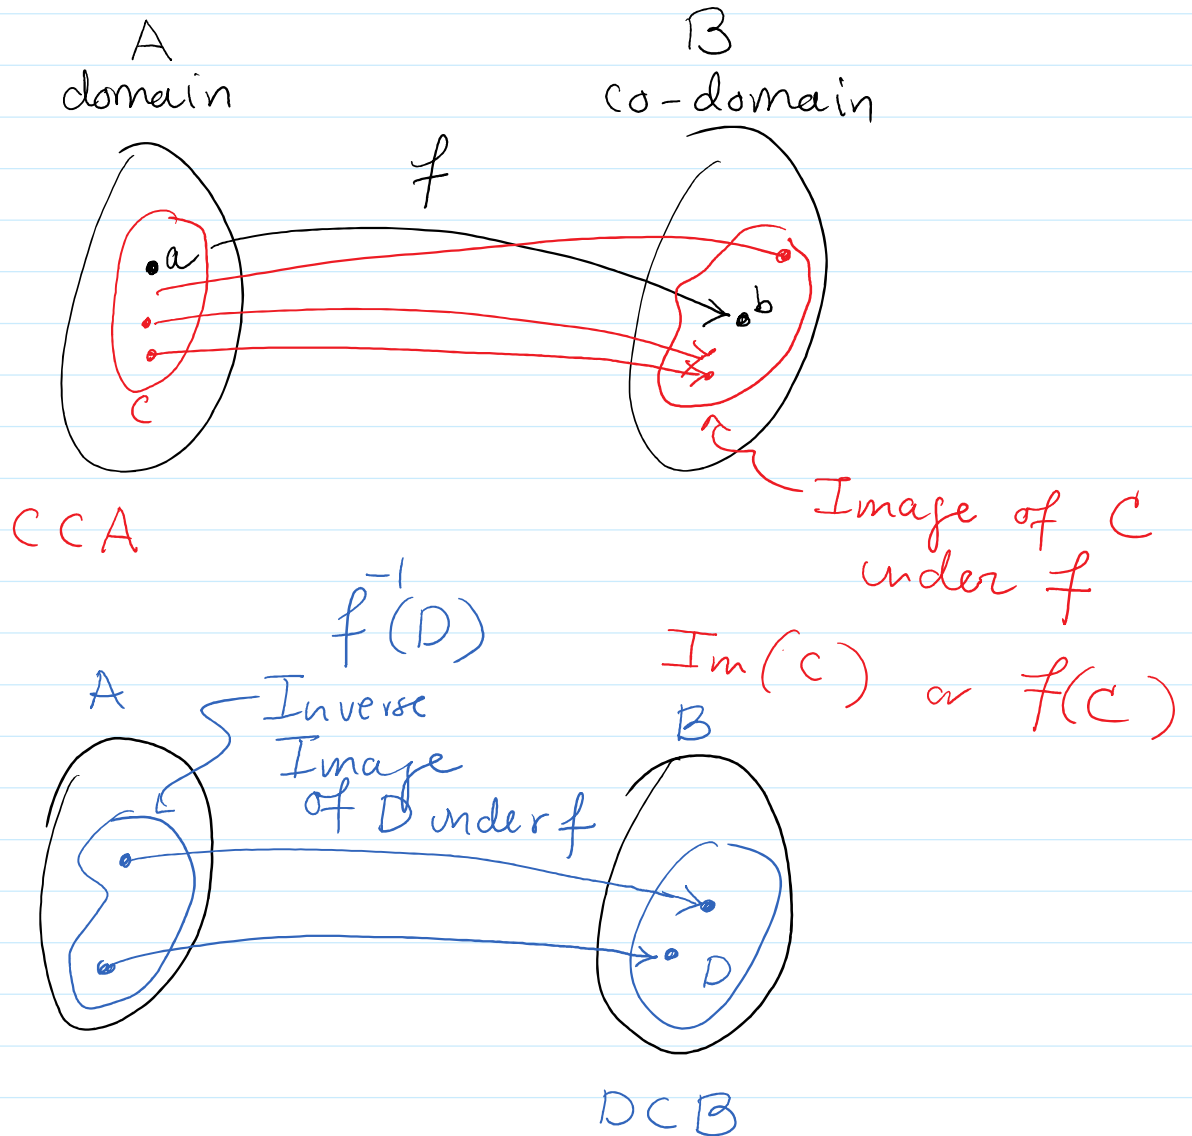 A
domain
B
co-domain
f
a
b
C
C ⊂ A
Image of C
under f
Im(C) or f(C)
f⁻¹(D)
A
Inverse
Image
of D under f
B
D
D ⊂ B